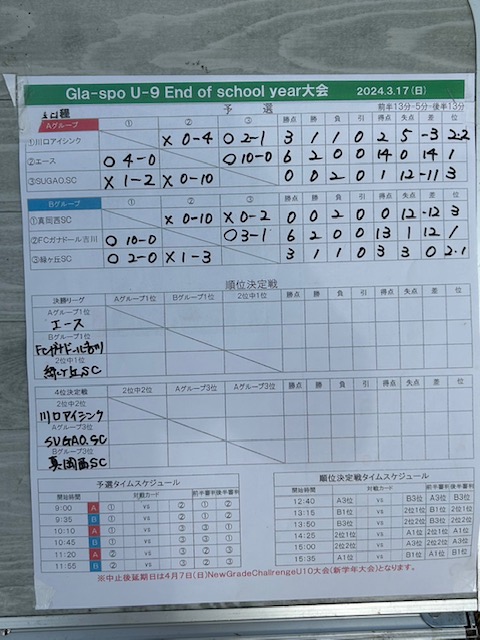 Gla-spo U-9 End of school year大会 2024.3.17(日)
予 選 前半13分-5分-後半13分
Aグループ ① ② ③ 勝点 勝 負 引 得点 失点 差 位
①川口アイシンク X 0-4 O 2-1 3 1 1 0 2 5 -3 2-2
②エース O 4-0 O 10-0 6 2 0 0 14 0 14 1
③SUGAO.SC X 1-2 X 0-10 0 0 2 0 1 12 -11 3
Bグループ ① ② ③ 勝点 勝 負 引 得点 失点 差 位
①真岡西SC X 0-10 X 0-2 0 0 2 0 0 12 -12 3
②FCガナドール吉川 O 10-0 O 3-1 6 2 0 0 13 1 12 1
③緑ヶ丘SC O 2-0 X 1-3 3 1 1 0 3 3 0 2-1
順位決定戦
決勝リーグ Aグループ1位 Bグループ1位 2位中1位 勝点 勝 負 引 得点 失点 差 位
Aグループ1位
エース
Bグループ1位
FCガナドール吉川
2位中1位
緑ヶ丘SC
4位決定戦 2位中2位 Aグループ3位 Bグループ3位 勝点 勝 負 引 得点 失点 差 位
2位中2位
川口アイシンク
Aグループ3位
SUGAO.SC
Bグループ3位
真岡西SC
予選タイムスケジュール
開始時間 対戦カード 前半審判 後半審判
9:00 A ① vs ② ① ②
9:35 B ① vs ② ① ②
10:10 A ① vs ③ ① ③
10:45 B ① vs ③ ① ③
11:20 A ② vs ③ ② ③
11:55 B ② vs ③ ② ③
順位決定戦タイムスケジュール
開始時間 対戦カード 前半審判 後半審判
12:40 A3位 vs B3位 A3位 B3位
13:15 B1位 vs 2位1位 B1位 2位1位
13:50 B3位 vs 2位2位 B3位 2位2位
14:25 2位1位 vs A1位 2位1位 A1位
15:00 2位2位 vs A3位 2位2位 A3位
15:35 A1位 vs B1位 A1位 B1位
※中止後延期日は4月7日(日)NewGradeChallrengeU10大会(新学年大会)となります。